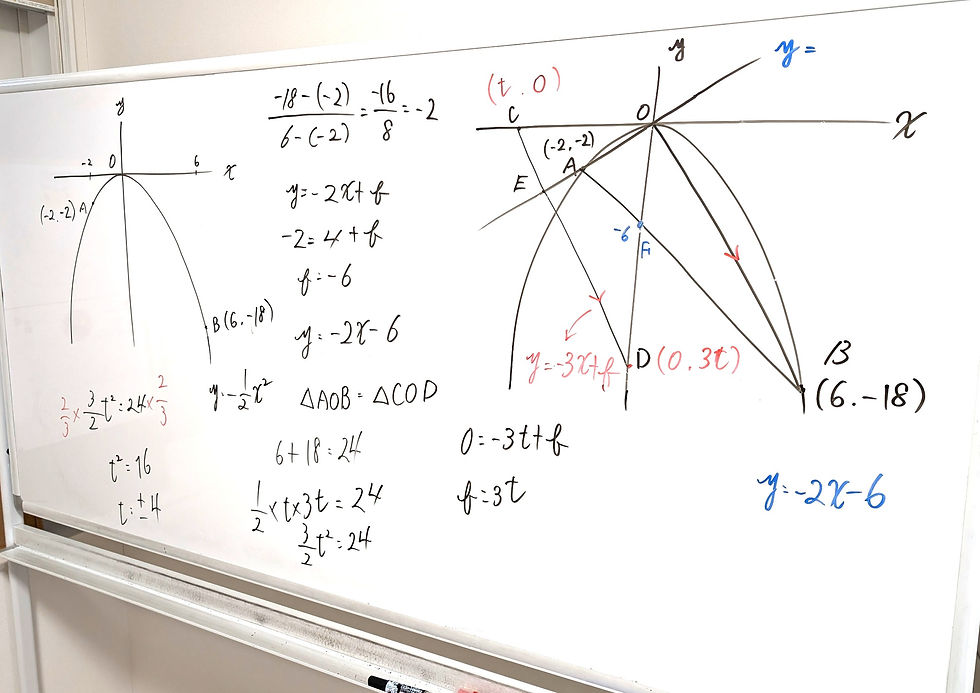 y
-2 O 6 x
(-2,-2) A
B (6.-18)
y=-1/2x²
2/3×3/2t²=24×2/3
t²=16
t=±4
-18-(-2)/6-(-2)=-16/8=-2
y=-2x+b
-2=4+b
b=-6
y=-2x-6
△AOB=△COD
6+18=24
1/2×t×3t=24
3/2t²=24
(t.0)
C
y
y=
O
x
(-2,-2)
A
E
-6
F
y=-3x+b
D (0,3t)
B
(6.-18)
0=-3t+b
b=3t
y=-2x-6